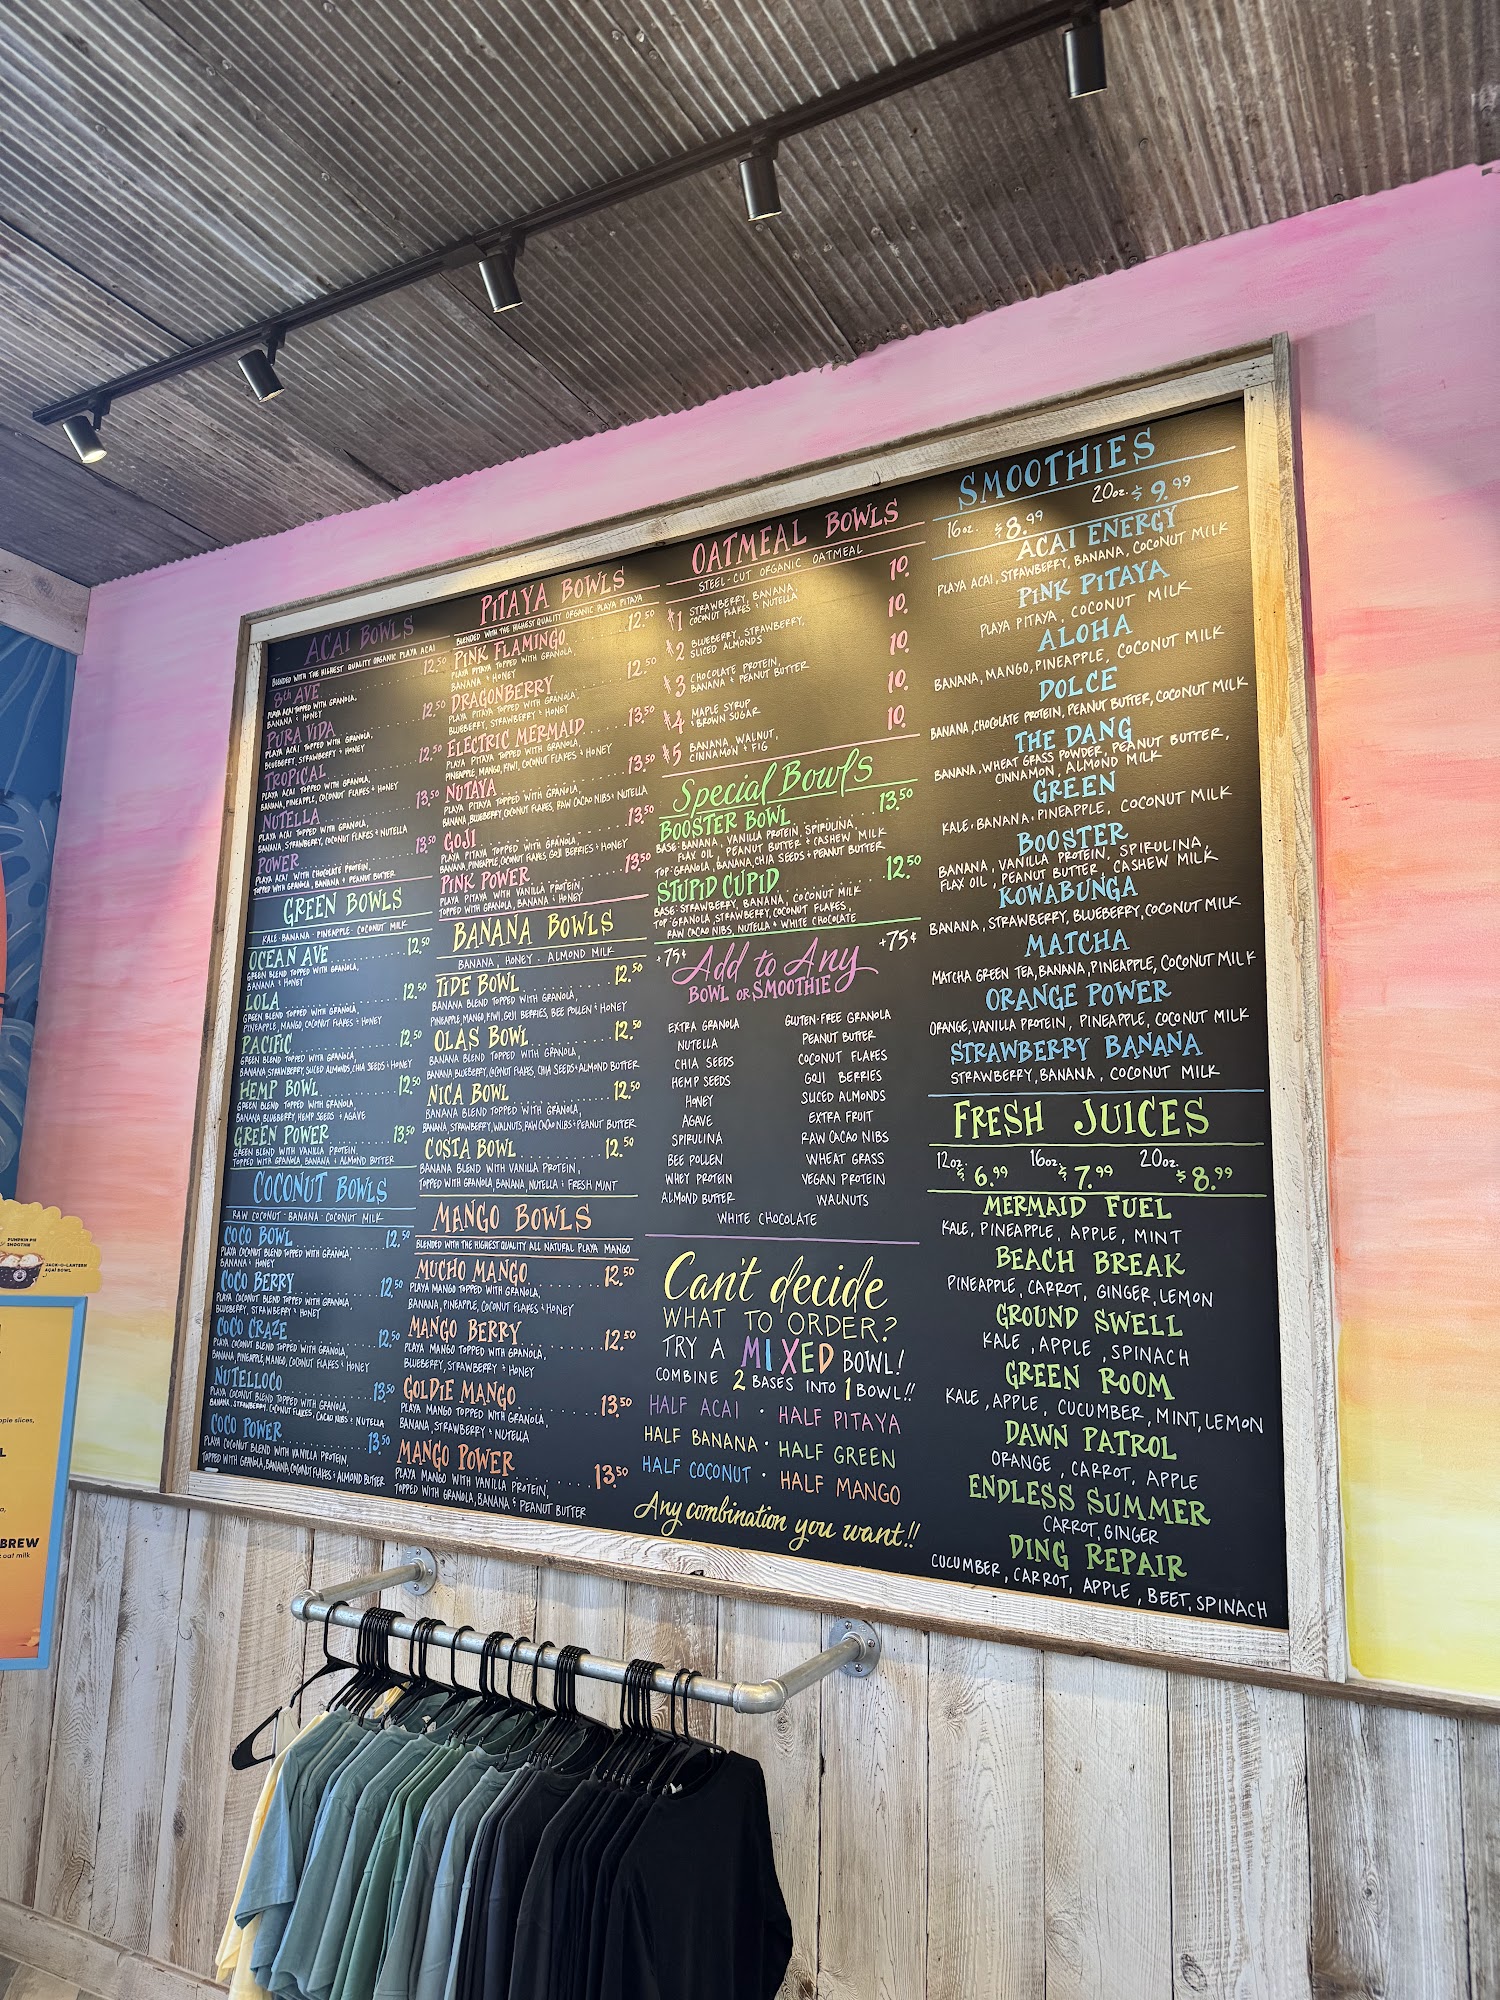 ACAI BOWLS
BLENDED WITH THE HIGHEST QUALITY ORGANIC PLAYA ACAI
8th AVE 12.50
PLAYA ACAI TOPPED WITH GRANOLA,
BANANA & HONEY
PURA VIDA 12.50
PLAYA ACAI TOPPED WITH GRANOLA,
BLUEBERRY, STRAWBERRY & HONEY
TROPICAL 12.50
PLAYA ACAI TOPPED WITH GRANOLA,
BANANA, PINEAPPLE, COCONUT FLAKES & HONEY
NUTELLA 13.50
PLAYA ACAI TOPPED WITH GRANOLA,
BANANA, STRAWBERRY, COCONUT FLAKES & NUTELLA
POWER 13.50
PLAYA ACAI WITH CHOCOLATE PROTEIN,
TOPPED WITH GRANOLA, BANANA & PEANUT BUTTER
GREEN BOWLS
KALE · BANANA · PINEAPPLE · COCONUT MILK
OCEAN AVE 12.50
GREEN BLEND TOPPED WITH GRANOLA,
BANANA & HONEY
LOLA 12.50
GREEN BLEND TOPPED WITH GRANOLA,
PINEAPPLE, MANGO, COCONUT FLAKES & HONEY
PACIFIC 12.50
GREEN BLEND TOPPED WITH GRANOLA,
BANANA, STRAWBERRY, SLICED ALMONDS, CHIA SEEDS & HONEY
HEMP BOWL 12.50
GREEN BLEND TOPPED WITH GRANOLA
BANANA BLUEBERRY, HEMP SEEDS & AGAVE
GREEN POWER 13.50
GREEN BLEND WITH VANILLA PROTEIN,
TOPPED WITH GRANOLA, BANANA & ALMOND BUTTER
COCONUT BOWLS
RAW COCONUT · BANANA · COCONUT MILK
COCO BOWL 12.50
PLAYA COCONUT BLEND TOPPED WITH GRANOLA,
BANANA & HONEY
COCO BERRY 12.50
PLAYA COCONUT BLEND TOPPED WITH GRANOLA,
BLUEBERRY, STRAWBERRY & HONEY
COCO CRAZE 12.50
PLAYA COCONUT BLEND TOPPED WITH GRANOLA,
BANANA, PINEAPPLE, MANGO, COCONUT FLAKES & HONEY
NUTELLOCO 13.50
PLAYA COCONUT BLEND TOPPED WITH GRANOLA,
BANANA, STRAWBERRY, COCONUT FLAKES, CACAO NIBS & NUTELLA
COCO POWER 13.50
PLAYA COCONUT BLEND WITH VANILLA PROTEIN,
TOPPED WITH GRANOLA, BANANA, COCONUT FLAKES & ALMOND BUTTER
PITAYA BOWLS
BLENDED WITH THE HIGHEST QUALITY ORGANIC PLAYA PITAYA
PINK FLAMINGO 12.50
PLAYA PITAYA TOPPED WITH GRANOLA,
BANANA & HONEY
DRAGONBERRY 12.50
PLAYA PITAYA TOPPED WITH GRANOLA,
BLUEBERRY, STRAWBERRY & HONEY
ELECTRIC MERMAID 13.50
PLAYA PITAYA TOPPED WITH GRANOLA,
PINEAPPLE, MANGO, KIWI, COCONUT FLAKES & HONEY
NUTAYA 13.50
PLAYA PITAYA TOPPED WITH GRANOLA,
BANANA, BLUEBERRY, COCONUT FLAKES, RAW CACAO NIBS & NUTELLA
GOJI 13.50
PLAYA PITAYA TOPPED WITH GRANOLA,
BANANA PINEAPPLE, COCONUT FLAKES, GOJI BERRIES & HONEY
PINK POWER 13.50
PLAYA PITAYA WITH VANILLA PROTEIN,
TOPPED WITH GRANOLA, BANANA & HONEY
BANANA BOWLS
BANANA, HONEY · ALMOND MILK
TIDE BOWL 12.50
BANANA BLEND TOPPED WITH GRANOLA,
PINEAPPLE, MANGO, KIWI, GOJI BERRIES, BEE POLLEN & HONEY
OLAS BOWL 12.50
BANANA BLEND TOPPED WITH GRANOLA,
BANANA BLUEBERRY, COCONUT FLAKES, CHIA SEEDS & ALMOND BUTTER
NICA BOWL 12.50
BANANA BLEND TOPPED WITH GRANOLA,
BANANA, STRAWBERRY, WALNUTS, RAW CACAO NIBS & PEANUT BUTTER
COSTA BOWL 12.50
BANANA BLEND WITH VANILLA PROTEIN,
TOPPED WITH GRANOLA, BANANA, NUTELLA & FRESH MINT
MANGO BOWLS
BLENDED WITH THE HIGHEST QUALITY ALL NATURAL PLAYA MANGO
MUCHO MANGO 12.50
PLAYA MANGO TOPPED WITH GRANOLA,
BANANA, PINEAPPLE, COCONUT FLAKES & HONEY
MANGO BERRY 12.50
PLAYA MANGO TOPPED WITH GRANOLA,
BLUEBERRY, STRAWBERRY & HONEY
GOLDIE MANGO 13.50
PLAYA MANGO TOPPED WITH GRANOLA,
BANANA, STRAWBERRY & NUTELLA
MANGO POWER 13.50
PLAYA MANGO WITH VANILLA PROTEIN,
TOPPED WITH GRANOLA, BANANA & PEANUT BUTTER
OATMEAL BOWLS
STEEL-CUT ORGANIC OATMEAL
#1 STRAWBERRY, BANANA, 10.
COCONUT FLAKES & NUTELLA
#2 BLUEBERRY, STRAWBERRY, 10.
SLICED ALMONDS
#3 CHOCOLATE PROTEIN, 10.
BANANA & PEANUT BUTTER
#4 MAPLE SYRUP 10.
& BROWN SUGAR
#5 BANANA, WALNUT, 10.
CINNAMON & FIG
Special Bowls
BOOSTER BOWL 13.50
BASE: BANANA, VANILLA PROTEIN, SPIRULINA,
FLAX OIL, PEANUT BUTTER & CASHEW MILK
TOP: GRANOLA, BANANA, CHIA SEEDS & PEANUT BUTTER
STUPID CUPID 12.50
BASE: STRAWBERRY, BANANA, COCONUT MILK
TOP: GRANOLA, STRAWBERRY, COCONUT FLAKES,
RAW CACAO NIBS, NUTELLA & WHITE CHOCOLATE
+75¢ Add to Any +75¢
BOWL OR SMOOTHIE
EXTRA GRANOLA GLUTEN-FREE GRANOLA
NUTELLA PEANUT BUTTER
CHIA SEEDS COCONUT FLAKES
HEMP SEEDS GOJI BERRIES
HONEY SLICED ALMONDS
AGAVE EXTRA FRUIT
SPIRULINA RAW CACAO NIBS
BEE POLLEN WHEAT GRASS
WHEY PROTEIN VEGAN PROTEIN
ALMOND BUTTER WALNUTS
WHITE CHOCOLATE
Can't decide
WHAT TO ORDER?
TRY A MIXED BOWL!
COMBINE 2 BASES INTO 1 BOWL!!
HALF ACAI · HALF PITAYA
HALF BANANA · HALF GREEN
HALF COCONUT · HALF MANGO
Any combination you want!!
SMOOTHIES
16oz. $8.99 20oz. $9.99
ACAI ENERGY
PLAYA ACAI, STRAWBERRY, BANANA, COCONUT MILK
PINK PITAYA
PLAYA PITAYA, COCONUT MILK
ALOHA
BANANA, MANGO, PINEAPPLE, COCONUT MILK
DOLCE
BANANA, CHOCOLATE PROTEIN, PEANUT BUTTER, COCONUT MILK
THE DANG
BANANA, WHEAT GRASS POWDER, PEANUT BUTTER,
CINNAMON, ALMOND MILK
GREEN
KALE, BANANA, PINEAPPLE, COCONUT MILK
BOOSTER
BANANA, VANILLA PROTEIN, SPIRULINA,
FLAX OIL, PEANUT BUTTER, CASHEW MILK
KOWABUNGA
BANANA, STRAWBERRY, BLUEBERRY, COCONUT MILK
MATCHA
MATCHA GREEN TEA, BANANA, PINEAPPLE, COCONUT MILK
ORANGE POWER
ORANGE, VANILLA PROTEIN, PINEAPPLE, COCONUT MILK
STRAWBERRY BANANA
STRAWBERRY, BANANA, COCONUT MILK
FRESH JUICES
12oz. $6.99 16oz. $7.99 20oz. $8.99
MERMAID FUEL
KALE, PINEAPPLE, APPLE, MINT
BEACH BREAK
PINEAPPLE, CARROT, GINGER, LEMON
GROUND SWELL
KALE, APPLE, SPINACH
GREEN ROOM
KALE, APPLE, CUCUMBER, MINT, LEMON
DAWN PATROL
ORANGE, CARROT, APPLE
ENDLESS SUMMER
CARROT, GINGER
DING REPAIR
CUCUMBER, CARROT, APPLE, BEET, SPINACH
PUMPKIN PIE
SMOOTHIE
JACK-O-LANTERN
ACAI BOWL
slices,
BREW
oat milk